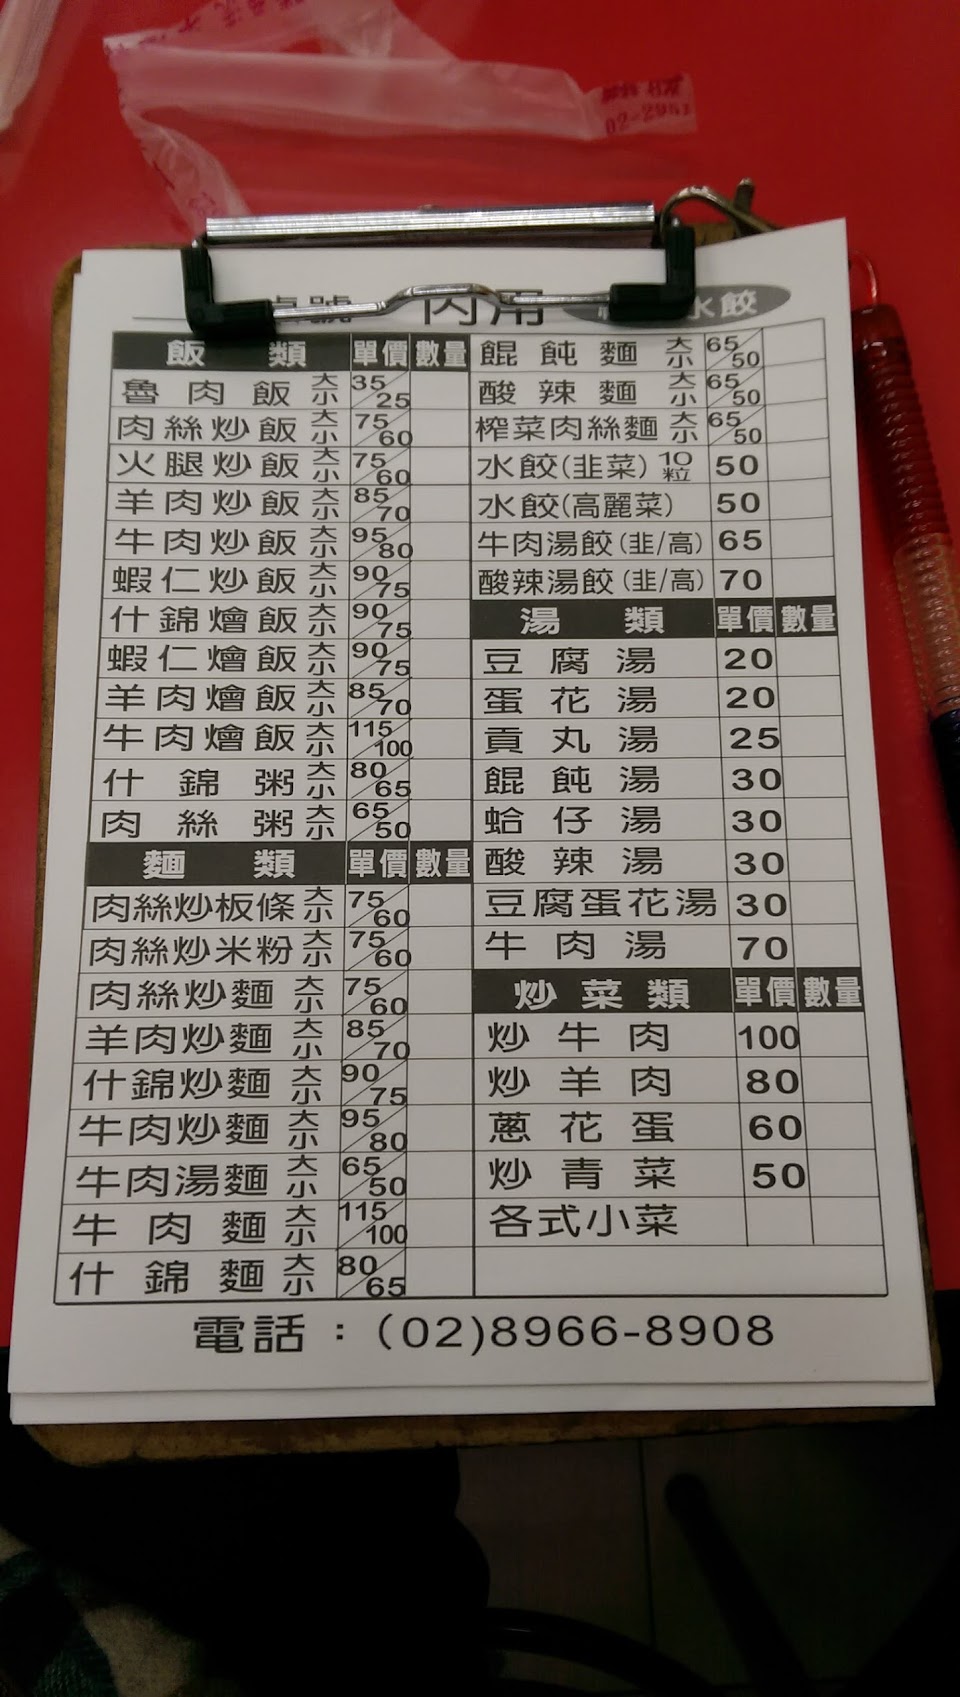 02-2952
號 內用 水餃
飯類 單價 數量
魯肉飯 大小 35/25
肉絲炒飯 大小 75/60
火腿炒飯 大小 75/60
羊肉炒飯 大小 85/70
牛肉炒飯 大小 95/80
蝦仁炒飯 大小 90/75
什錦燴飯 大小 90/75
蝦仁燴飯 大小 90/75
羊肉燴飯 大小 85/70
牛肉燴飯 大小 115/100
什錦粥 大小 80/65
肉絲粥 大小 65/50
麵類 單價 數量
肉絲炒板條 大小 75/60
肉絲炒米粉 大小 75/60
肉絲炒麵 大小 75/60
羊肉炒麵 大小 85/70
什錦炒麵 大小 90/75
牛肉炒麵 大小 95/80
牛肉湯麵 大小 65/50
牛肉麵 大小 115/100
什錦麵 大小 80/65
餛飩麵 大小 65/50
酸辣麵 大小 65/50
榨菜肉絲麵 大小 65/50
水餃(韭菜) 10粒 50
水餃(高麗菜) 50
牛肉湯餃(韭/高) 65
酸辣湯餃(韭/高) 70
湯類 單價 數量
豆腐湯 20
蛋花湯 20
貢丸湯 25
餛飩湯 30
蛤仔湯 30
酸辣湯 30
豆腐蛋花湯 30
牛肉湯 70
炒菜類 單價 數量
炒牛肉 100
炒羊肉 80
蔥花蛋 60
炒青菜 50
各式小菜
電話：(02)8966-8908